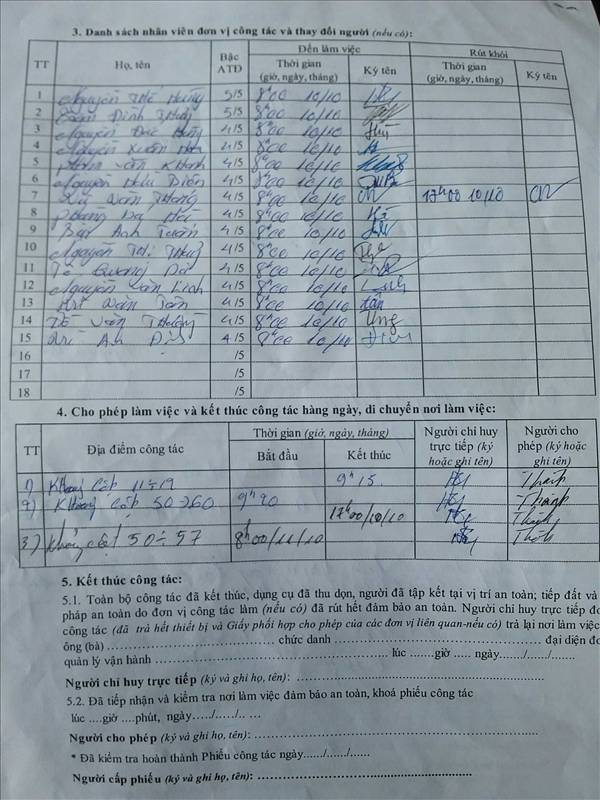 3. Danh sách nhân viên đơn vị công tác và thay đổi người (nếu có):
TT Họ, tên Bậc ATĐ Đến làm việc Rút khỏi
Thời gian (giờ, ngày, tháng) Ký tên Thời gian (giờ, ngày, tháng) Ký tên
1 Nguyễn Thế Hưng 5/5 8h00 10/10
2 Đình 5/5 8h00 10/10
3 Nguyễn Đức 4/5 8h00 10/10
4 Nguyễn Xuân 4/5 8h00 10/10
5 Phạm Văn Khanh 4/5 8h00 10/10
6 Nguyễn Hữu Diễn 4/5 8h00 10/10
7 Văn Thắng 4/5 8h00 10/10 17h00 10/10
8 Hoàng Hải 4/5 8h00 10/10
9 Anh Tuấn 4/5 8h00 10/10
10 Nguyễn Thuỷ 4/5 8h00 10/10
11 Tô Quang Dự 4/5 8h00 10/10
12 Nguyễn Văn Linh 4/5 8h00 10/10
13 Văn Tân 4/5 8h00 10/10 tân
14 Văn Thưởng 4/5 8h00 10/10
15 Anh 4/5 8h00 10/10
16 /5
17 /5
18 /5
4. Cho phép làm việc và kết thúc công tác hàng ngày, di chuyển nơi làm việc:
TT Địa điểm công tác Thời gian (giờ, ngày, tháng) Người chỉ huy trực tiếp (ký hoặc ghi tên) Người cho phép (ký hoặc ghi tên)
Bắt đầu Kết thúc
1) Khoảng cột 11÷19 9h15
2) Khoảng cột 50→60 9h20 17h00/10/10
3) Khoảng cột 50÷57 8h00/11/10
5. Kết thúc công tác:
5.1. Toàn bộ công tác đã kết thúc, dụng cụ đã thu dọn, người đã tập kết tại vị trí an toàn; tiếp đất và
pháp an toàn do đơn vị công tác làm (nếu có) đã rút hết đảm bảo an toàn. Người chỉ huy trực tiếp
công tác (đã trả hết thiết bị và Giấy phối hợp cho phép của các đơn vị liên quan-nếu có) trả lại nơi làm việc
ông (bà) .......... chức danh .......... đại diện
quản lý vận hành .......... lúc .......giờ ..... ngày....../....../.......
Người chỉ huy trực tiếp (ký và ghi họ, tên): ..........
5.2. Đã tiếp nhận và kiểm tra nơi làm việc đảm bảo an toàn, khoá phiếu công tác
lúc ....giờ ....phút, ngày...../...../.. ...
Người cho phép (ký và ghi họ, tên): ..........
* Đã kiểm tra hoàn thành Phiếu công tác ngày....../....../......
Người cấp phiếu (ký và ghi họ, tên): ..........